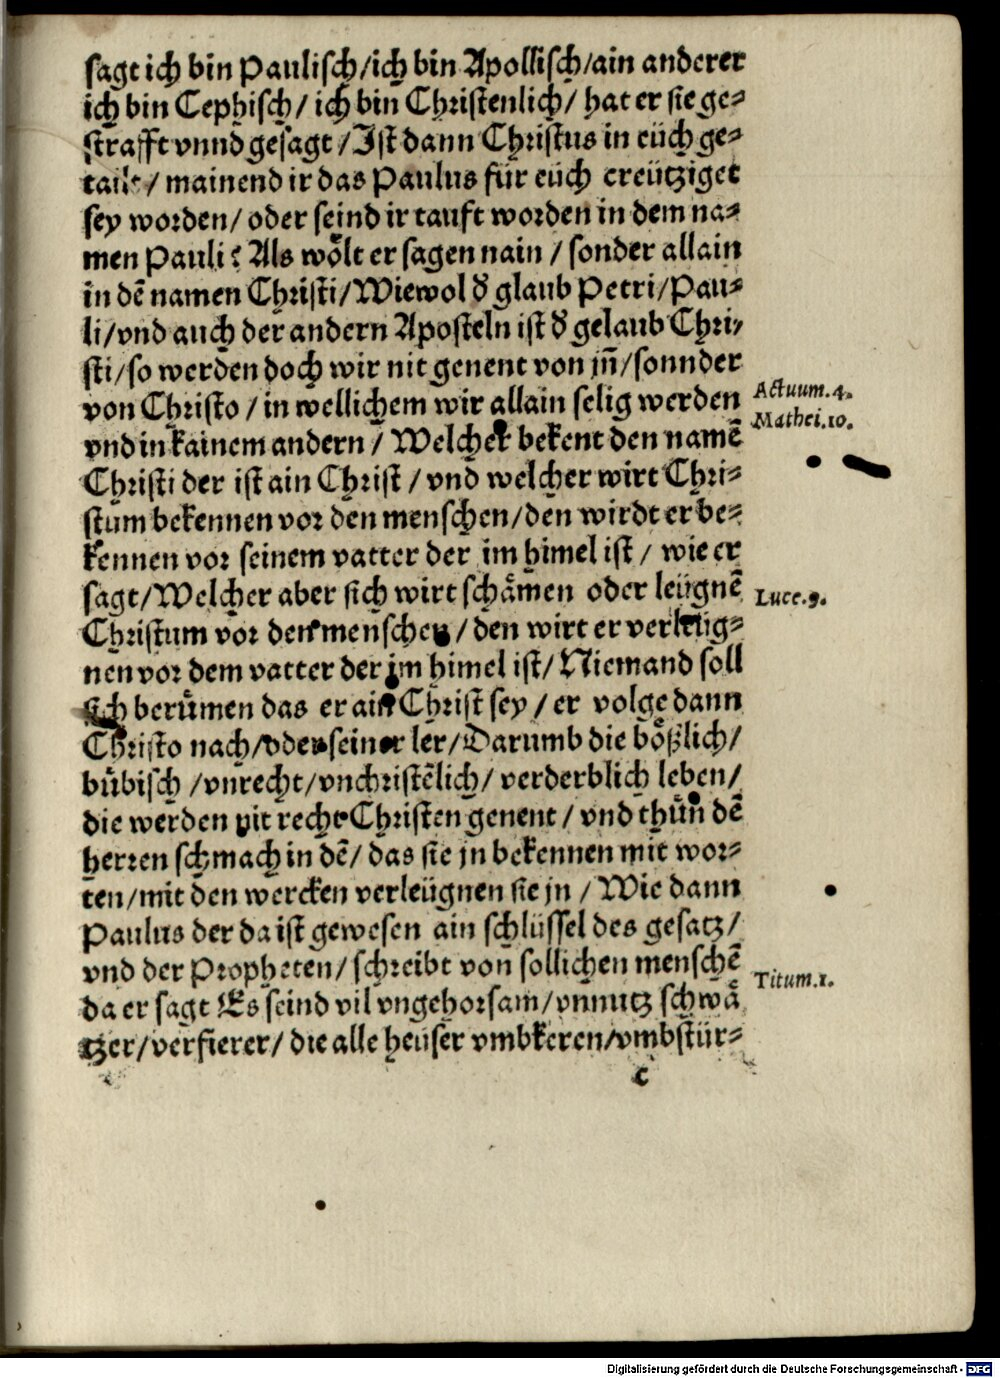 sagt ich bin Paulisch/ich bin Apollisch/ain anderer
ich bin Cephisch/ ich bin Christenlich/ hat er sie ge⸗
strafft vnnd gesagt /Ist dann Christus in eüch ge⸗
tailt/ mainend ir das Paulus für eüch creütziget
sey worden/ oder seind ir tauft worden in dem na⸗
men Pauli? Als wolt er sagen nain / sonder allain
in dē namen Christi/Wiewol d̕ glaub Petri/Pau⸗
li/vnd auch der andern Aposteln ist d̕ gelaub Chri/
sti/so werden doch wir nit genent von jn̄/sonnder
von Christo / in wellichem wir allain selig werden
Actuum.4.
vnd in kainem andern / Welcher bekent den namē
Mathei.10.
Christi der ist ain Christ / vnd welcher wirt Chri⸗
stum bekennen vor den menschen/den wirdt er be⸗
kennen vor seinem vatter der im himel ist / wie er
sagt/Welcher aber sich wirt schaͤmen oder leügnē
Luce.9.
Christum vor den menschen/ den wirt er verleüg⸗
nen vor dem vatter der jm himel ist/ Niemand soll
sich beruͤmen das er ain Christ sey / er volge dann
Christo nach/oder seiner ler/Darumb die boͤßlich/
buͤbisch /vnrecht/vnchristēlich/ verderblich leben/
die werden nit recht Christen genent / vnd thuͤn dē
herren schmach in dē/ das sie jn bekennen mit wor⸗
ten/mit den wercken verleügnen sie jn / Wie dann
Paulus der da ist gewesen ain schlüssel des gesatz/
vnd der Propheten/ schreibt von sollichen menschē
Titum.1.
da er sagt Es seind vil vngehorsam/vnnutz schwaͤ
tzer/verfierer/ die alle heüser vmbkeren/vmbstür⸗
c
Digitalisierung gefördert durch die Deutsche Forschungsgemeinschaft - DFG